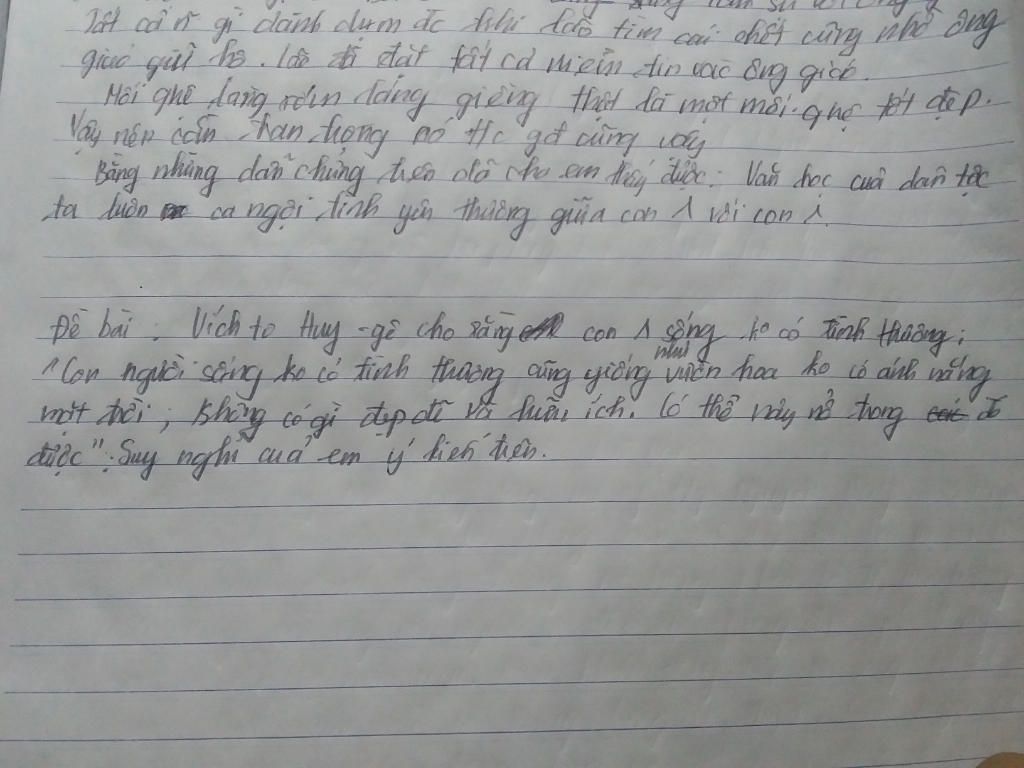 Tất cả n~ gì dành dụm đc khi lão tìm cái chết cũng nhờ ông
giáo giữ hộ. Lão đã đặt tất cả niềm tin vào ông giáo.
Mối qhệ làng xóm láng giềng thật là một mối qhệ tốt đẹp.
Vậy nên cần trân trọng nó
Bằng những dẫn chứng trên đã cho em thấy được: Văn học của dân tộc
ta luôn ca ngợi tình yêu thương giữa con λ với con λ.
Đề bài: Vích to Huy-gô cho rằng con λ sống ko có tình thương;
"Con người sống ko có tình thương cũng giống như vườn hoa ko có ánh nắng
mặt trời; không có gì đẹp đẽ và hữu ích. Có thể nảy nở trong đó
được". Suy nghĩ của em ý kiến trên.